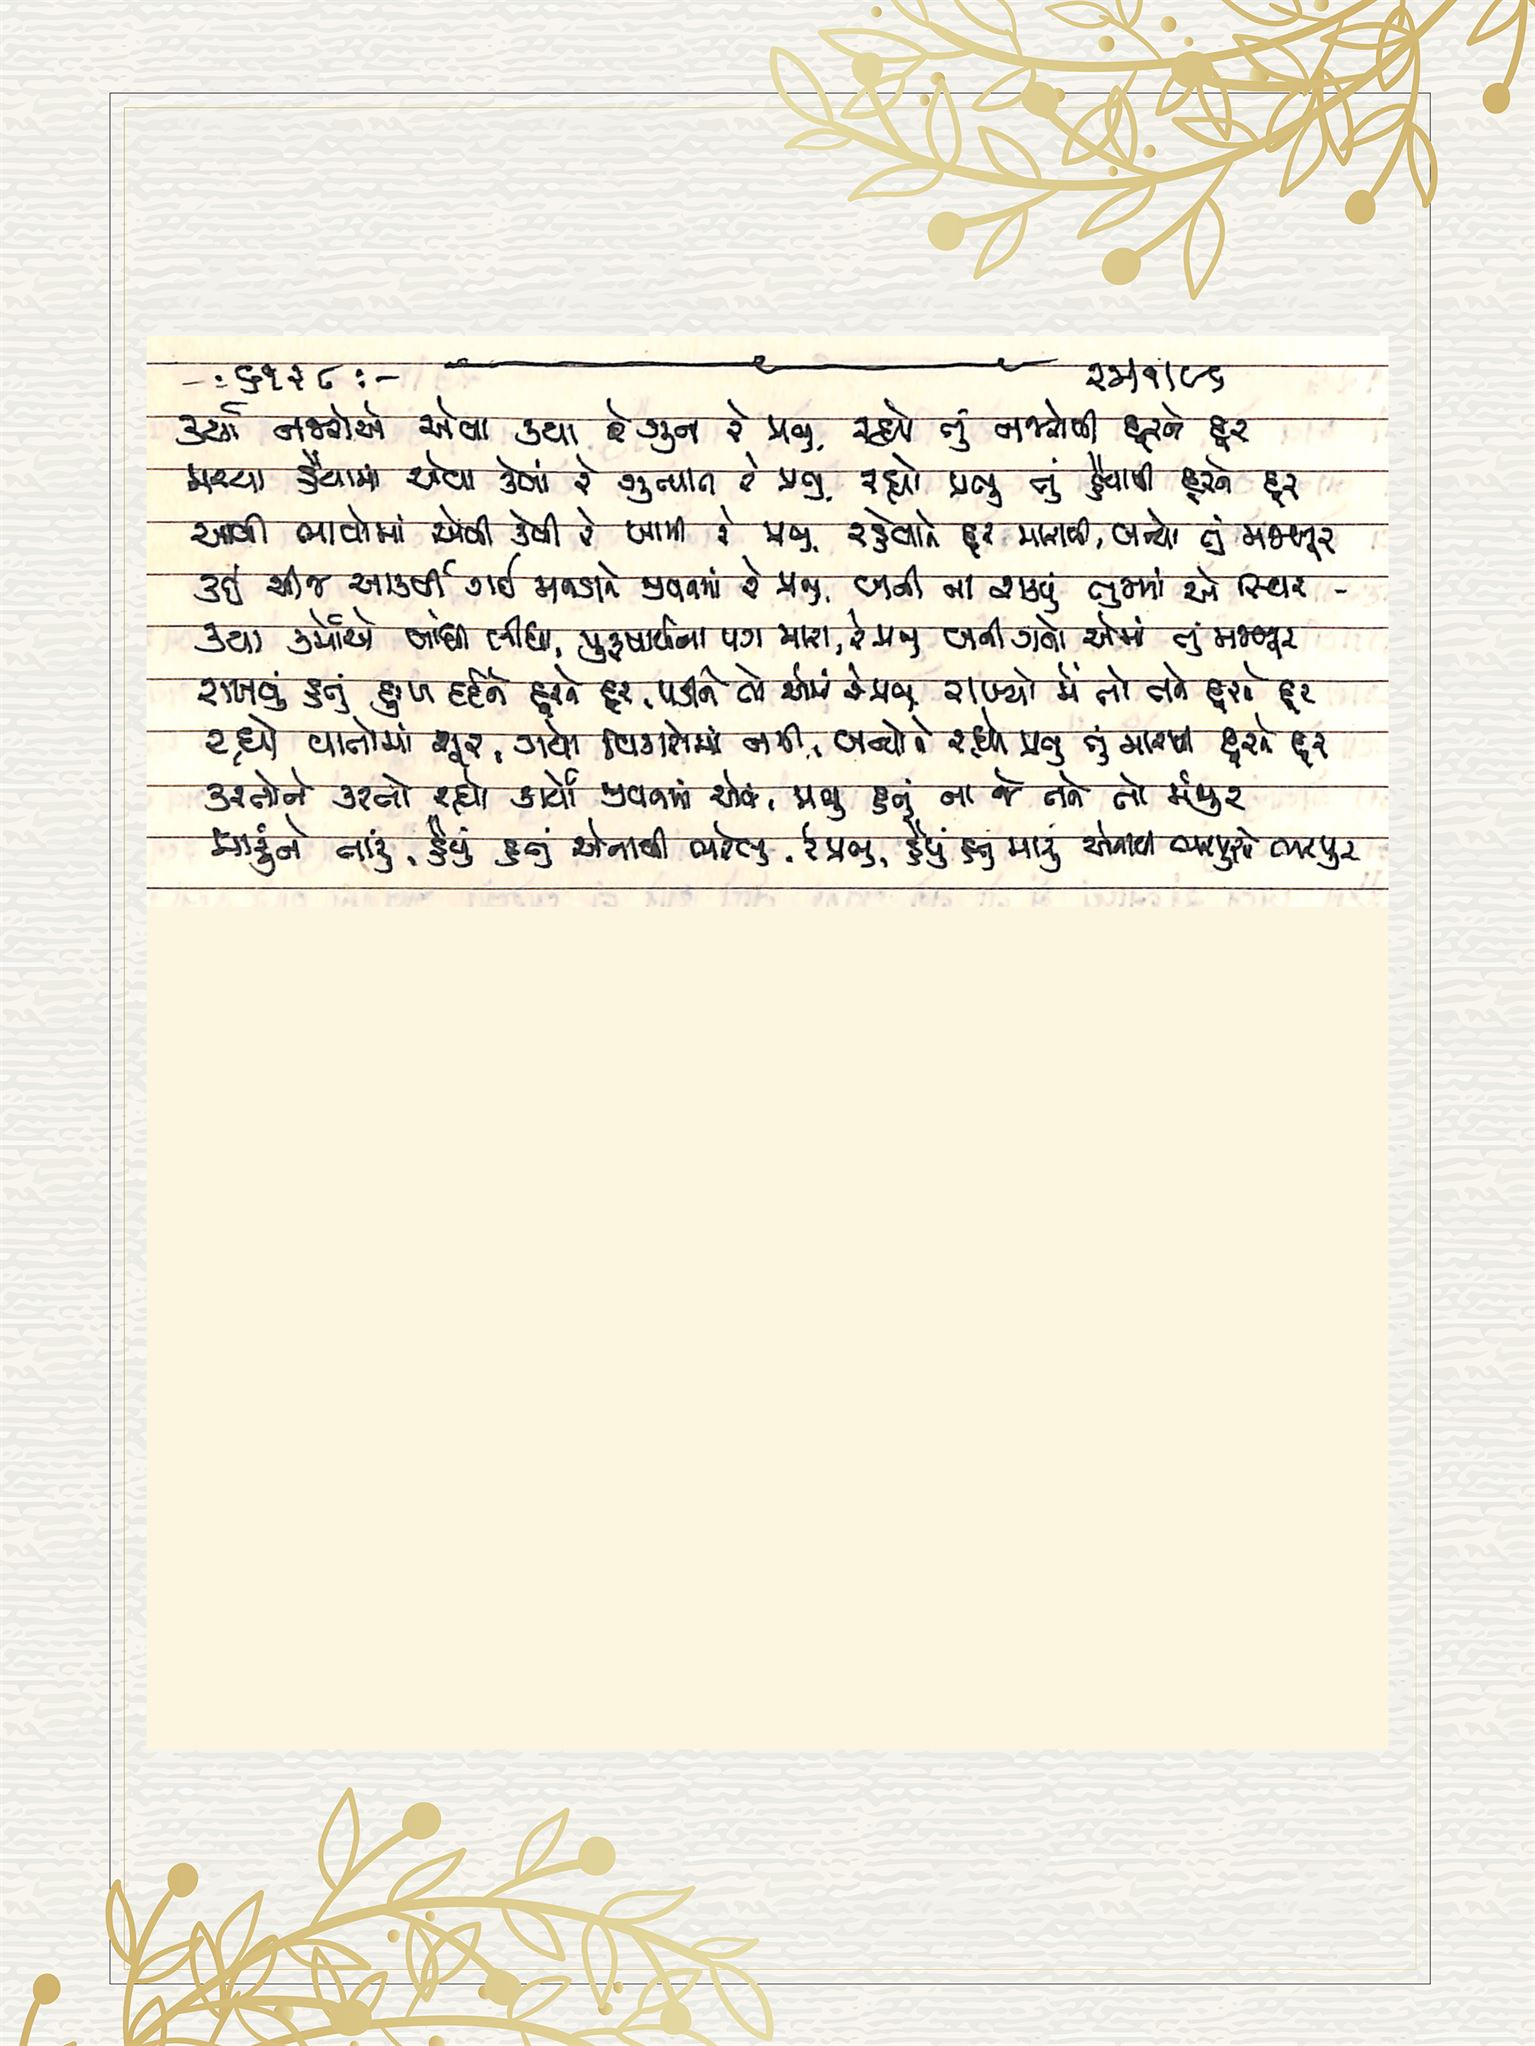 -: ૬૧૨૮ :-
કર્યા નજરોએ એવા કયા રે ગુન રે પ્રભુ, રહ્યો તું નજરોથી દૂરને દૂર
મચ્યા હૈયામાં એવા કેવાં રે તુફાન રે પ્રભુ, રહ્યો પ્રભુ તું હૈયાથી દૂરને દૂર
આવી ભાવોમાં એવી કેવી રે ખામી રે પ્રભુ, રહેવાને દૂર મારાથી, બન્યો તું મજબૂર
કઈ ચીજ આકર્ષી ગઈ મનડાને જીવનમાં રે પ્રભુ, બની ના શક્યું તુજમાં એ સ્થિર -
કયા કર્મોએ બાંધી લીધા, પુરુષાર્થના પગ મારા, રે પ્રભુ બની ગયો એમાં તું મજબૂર
રાખવું હતું દુઃખ દર્દને દૂરને દૂર, પડીને તો એમાં રે પ્રભુ રાખ્યો મેં તો તને દૂરને દૂર
રહ્યો વાતોમાં શૂર, ગયો વિકારોમાં બની, બન્યોને રહ્યો પ્રભુ તું મારાથી દૂરને દૂર
કરતોને કરતો રહ્યો કાર્યો જીવનમાં એવા, પ્રભુ હતું ના જે તને તો મંજુર
મારુંને તારું, હૈયું હતું એનાથી ભરેલું, રે પ્રભુ, હૈયું હતું મારું એનાથી ભરપુરને ભરપુર